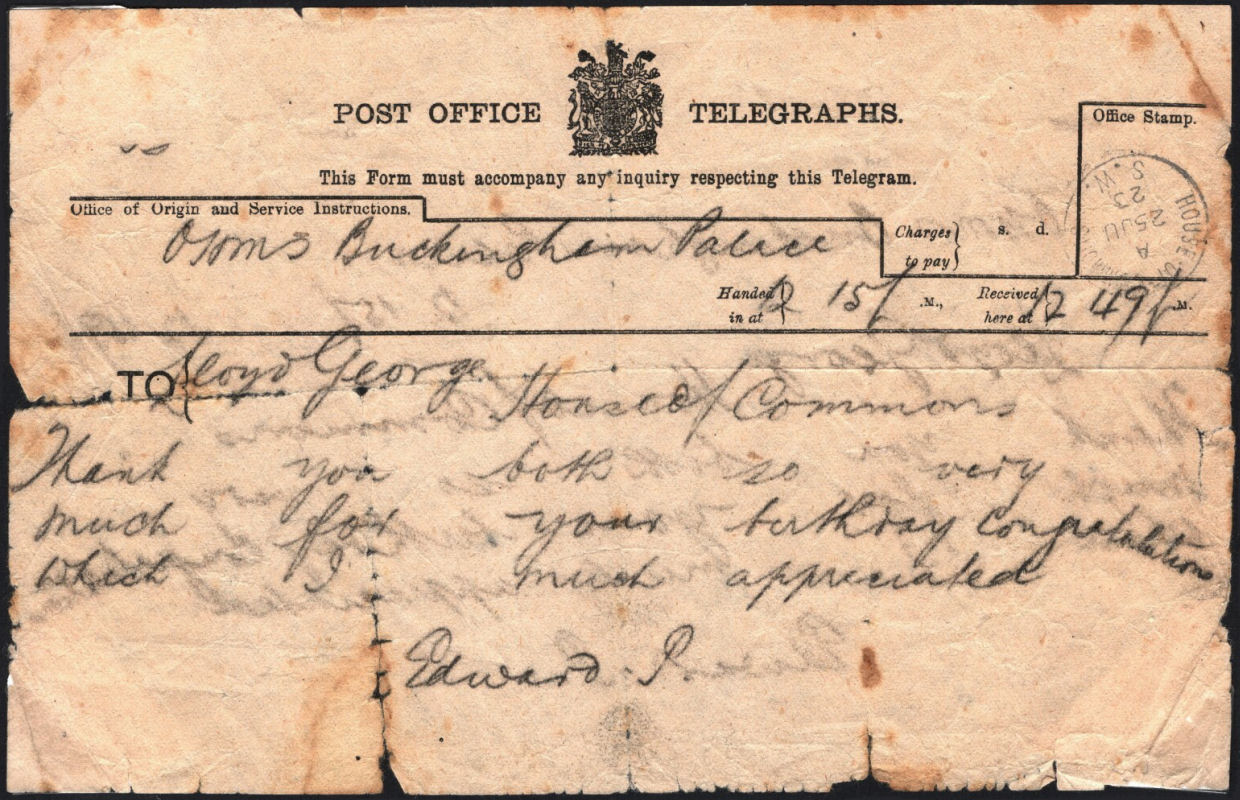 POST OFFICE TELEGRAPHS.
Office Stamp.
This Form must accompany any inquiry respecting this Telegram.
Office of Origin and Service Instructions.
OHMS Buckingham Palace
Charges to pay } s. d.
HOUSE OF
A
25 JU
23
S.W.
Handed in at } 12 15 / .M., Received here at } 12 49 / .M.
TO { Lloyd George
House of Commons
Thank you both so very
much for your birthday congratulations
which I much appreciated
Edward P.